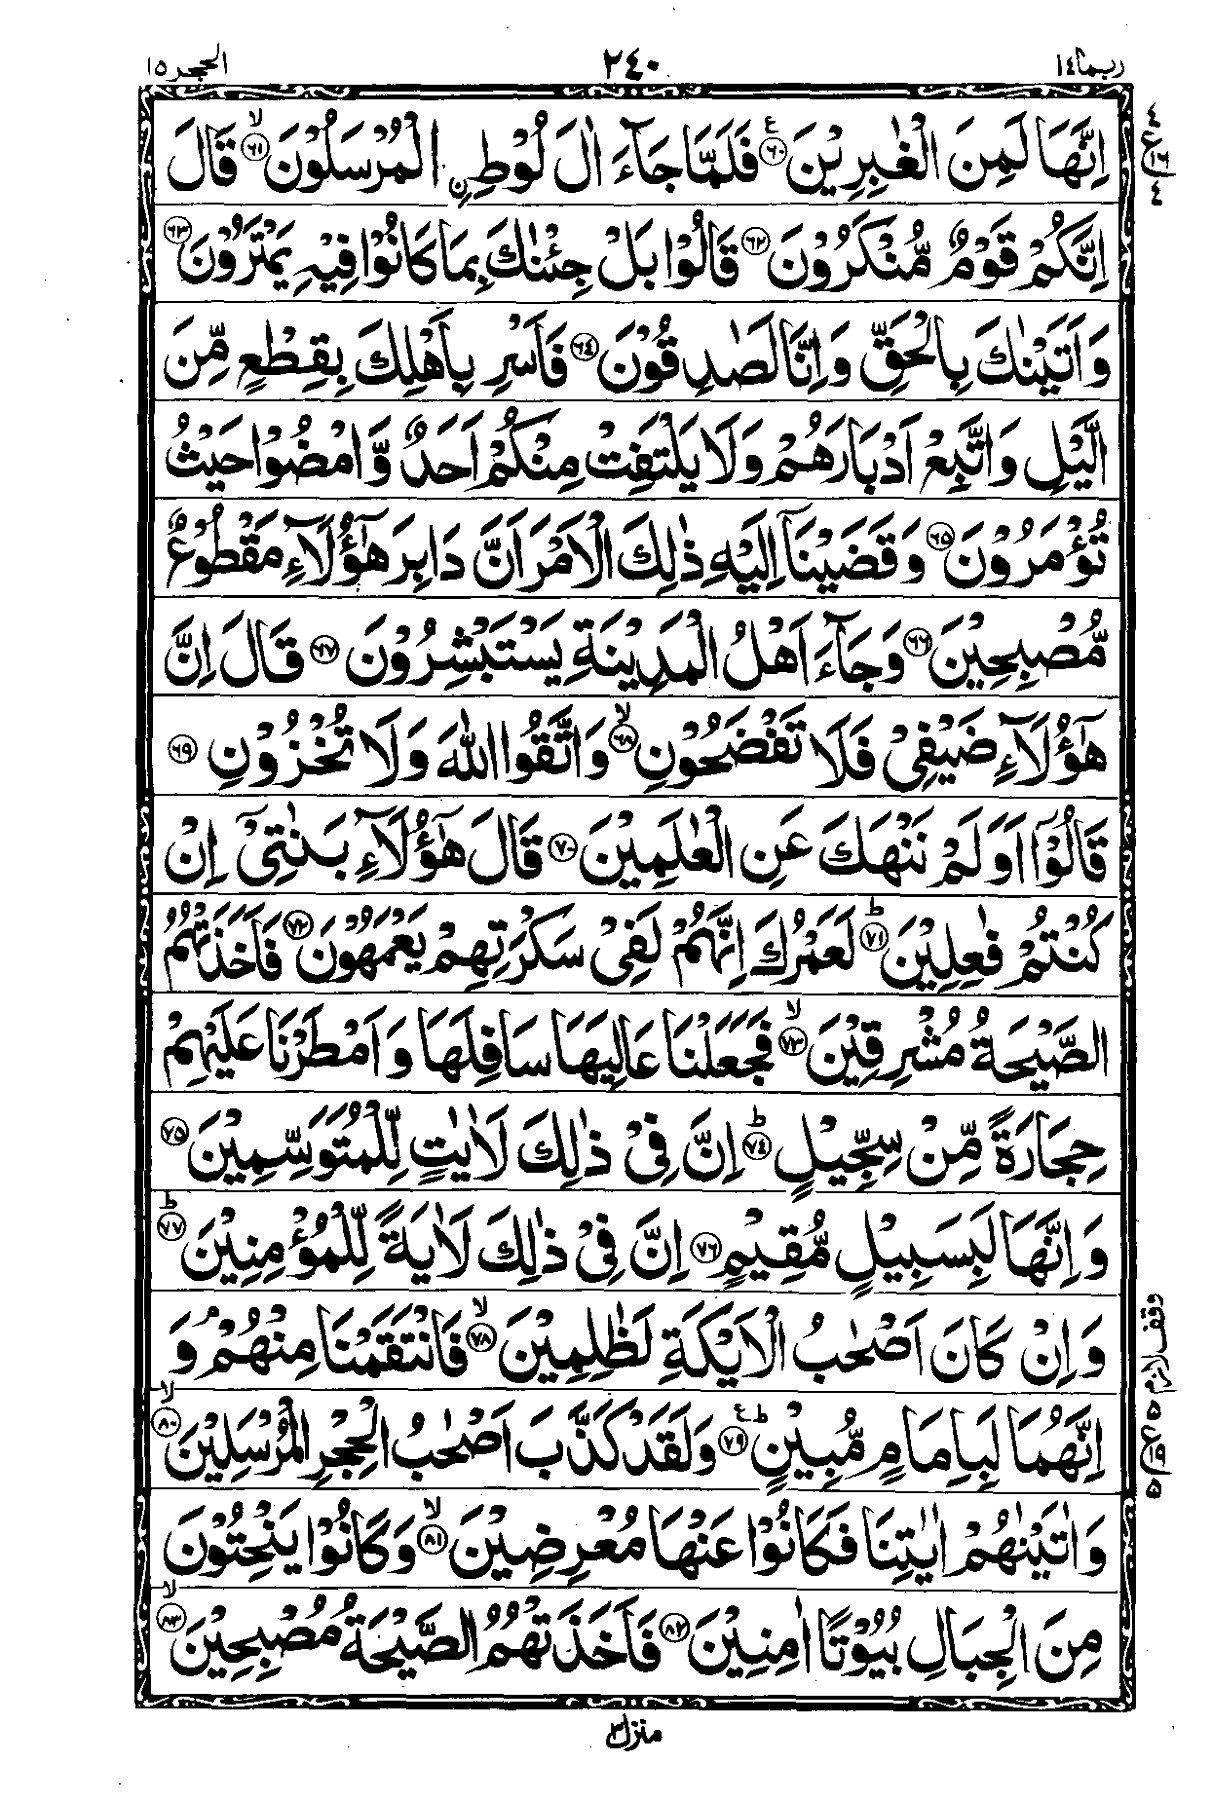 ربما ١٤ ٢٤٠ الحجر ١٥
اِنَّهَا لَمِنَ الْغٰبِرِيْنَ ﴿٦٠﴾ ع فَلَمَّا جَآءَ اٰلَ لُوْطِ ۨ الْمُرْسَلُوْنَ ﴿٦١﴾ ۙ قَالَ
اِنَّكُمْ قَوْمٌ مُّنْكَرُوْنَ ﴿٦٢﴾ قَالُوْا بَلْ جِئْنٰكَ بِمَا كَانُوْا فِيْهِ يَمْتَرُوْنَ ﴿٦٣﴾
وَاَتَيْنٰكَ بِالْحَقِّ وَاِنَّا لَصٰدِقُوْنَ ﴿٦٤﴾ فَاَسْرِ بِاَهْلِكَ بِقِطْعٍ مِّنَ
الَّيْلِ وَاتَّبِعْ اَدْبَارَهُمْ وَلَا يَلْتَفِتْ مِنْكُمْ اَحَدٌ وَّامْضُوْا حَيْثُ
تُؤْمَرُوْنَ ﴿٦٥﴾ وَقَضَيْنَآ اِلَيْهِ ذٰلِكَ الْاَمْرَ اَنَّ دَابِرَ هٰٓؤُلَآءِ مَقْطُوْعٌ
مُّصْبِحِيْنَ ﴿٦٦﴾ وَجَآءَ اَهْلُ الْمَدِيْنَةِ يَسْتَبْشِرُوْنَ ﴿٦٧﴾ قَالَ اِنَّ
هٰٓؤُلَآءِ ضَيْفِيْ فَلَا تَفْضَحُوْنِ ﴿٦٨﴾ ۙ وَاتَّقُوا اللّٰهَ وَلَا تُخْزُوْنِ ﴿٦٩﴾
قَالُوْٓا اَوَلَمْ نَنْهَكَ عَنِ الْعٰلَمِيْنَ ﴿٧٠﴾ قَالَ هٰٓؤُلَآءِ بَنٰتِيْٓ اِنْ
كُنْتُمْ فٰعِلِيْنَ ﴿٧١﴾ ؕ لَعَمْرُكَ اِنَّهُمْ لَفِيْ سَكْرَتِهِمْ يَعْمَهُوْنَ ﴿٧٢﴾ فَاَخَذَتْهُمُ
الصَّيْحَةُ مُشْرِقِيْنَ ﴿٧٣﴾ ۙ فَجَعَلْنَا عَالِيَهَا سَافِلَهَا وَاَمْطَرْنَا عَلَيْهِمْ
حِجَارَةً مِّنْ سِجِّيْلٍ ﴿٧٤﴾ ؕ اِنَّ فِيْ ذٰلِكَ لَاٰيٰتٍ لِّلْمُتَوَسِّمِيْنَ ﴿٧٥﴾
وَاِنَّهَا لَبِسَبِيْلٍ مُّقِيْمٍ ﴿٧٦﴾ اِنَّ فِيْ ذٰلِكَ لَاٰيَةً لِّلْمُؤْمِنِيْنَ ﴿٧٧﴾ ؕ
وَاِنْ كَانَ اَصْحٰبُ الْاَيْكَةِ لَظٰلِمِيْنَ ﴿٧٨﴾ ۙ فَانْتَقَمْنَا مِنْهُمْ ۘ وَ
وقف لازم
اِنَّهُمَا لَبِاِمَامٍ مُّبِيْنٍ ﴿٧٩﴾ ؕ ع وَلَقَدْ كَذَّبَ اَصْحٰبُ الْحِجْرِ الْمُرْسَلِيْنَ ﴿٨٠﴾ ۙ
وَاٰتَيْنٰهُمْ اٰيٰتِنَا فَكَانُوْا عَنْهَا مُعْرِضِيْنَ ﴿٨١﴾ ۙ وَكَانُوْا يَنْحِتُوْنَ
مِنَ الْجِبَالِ بُيُوْتًا اٰمِنِيْنَ ﴿٨٢﴾ فَاَخَذَتْهُمُ الصَّيْحَةُ مُصْبِحِيْنَ ﴿٨٣﴾ ۙ
منزل ٣